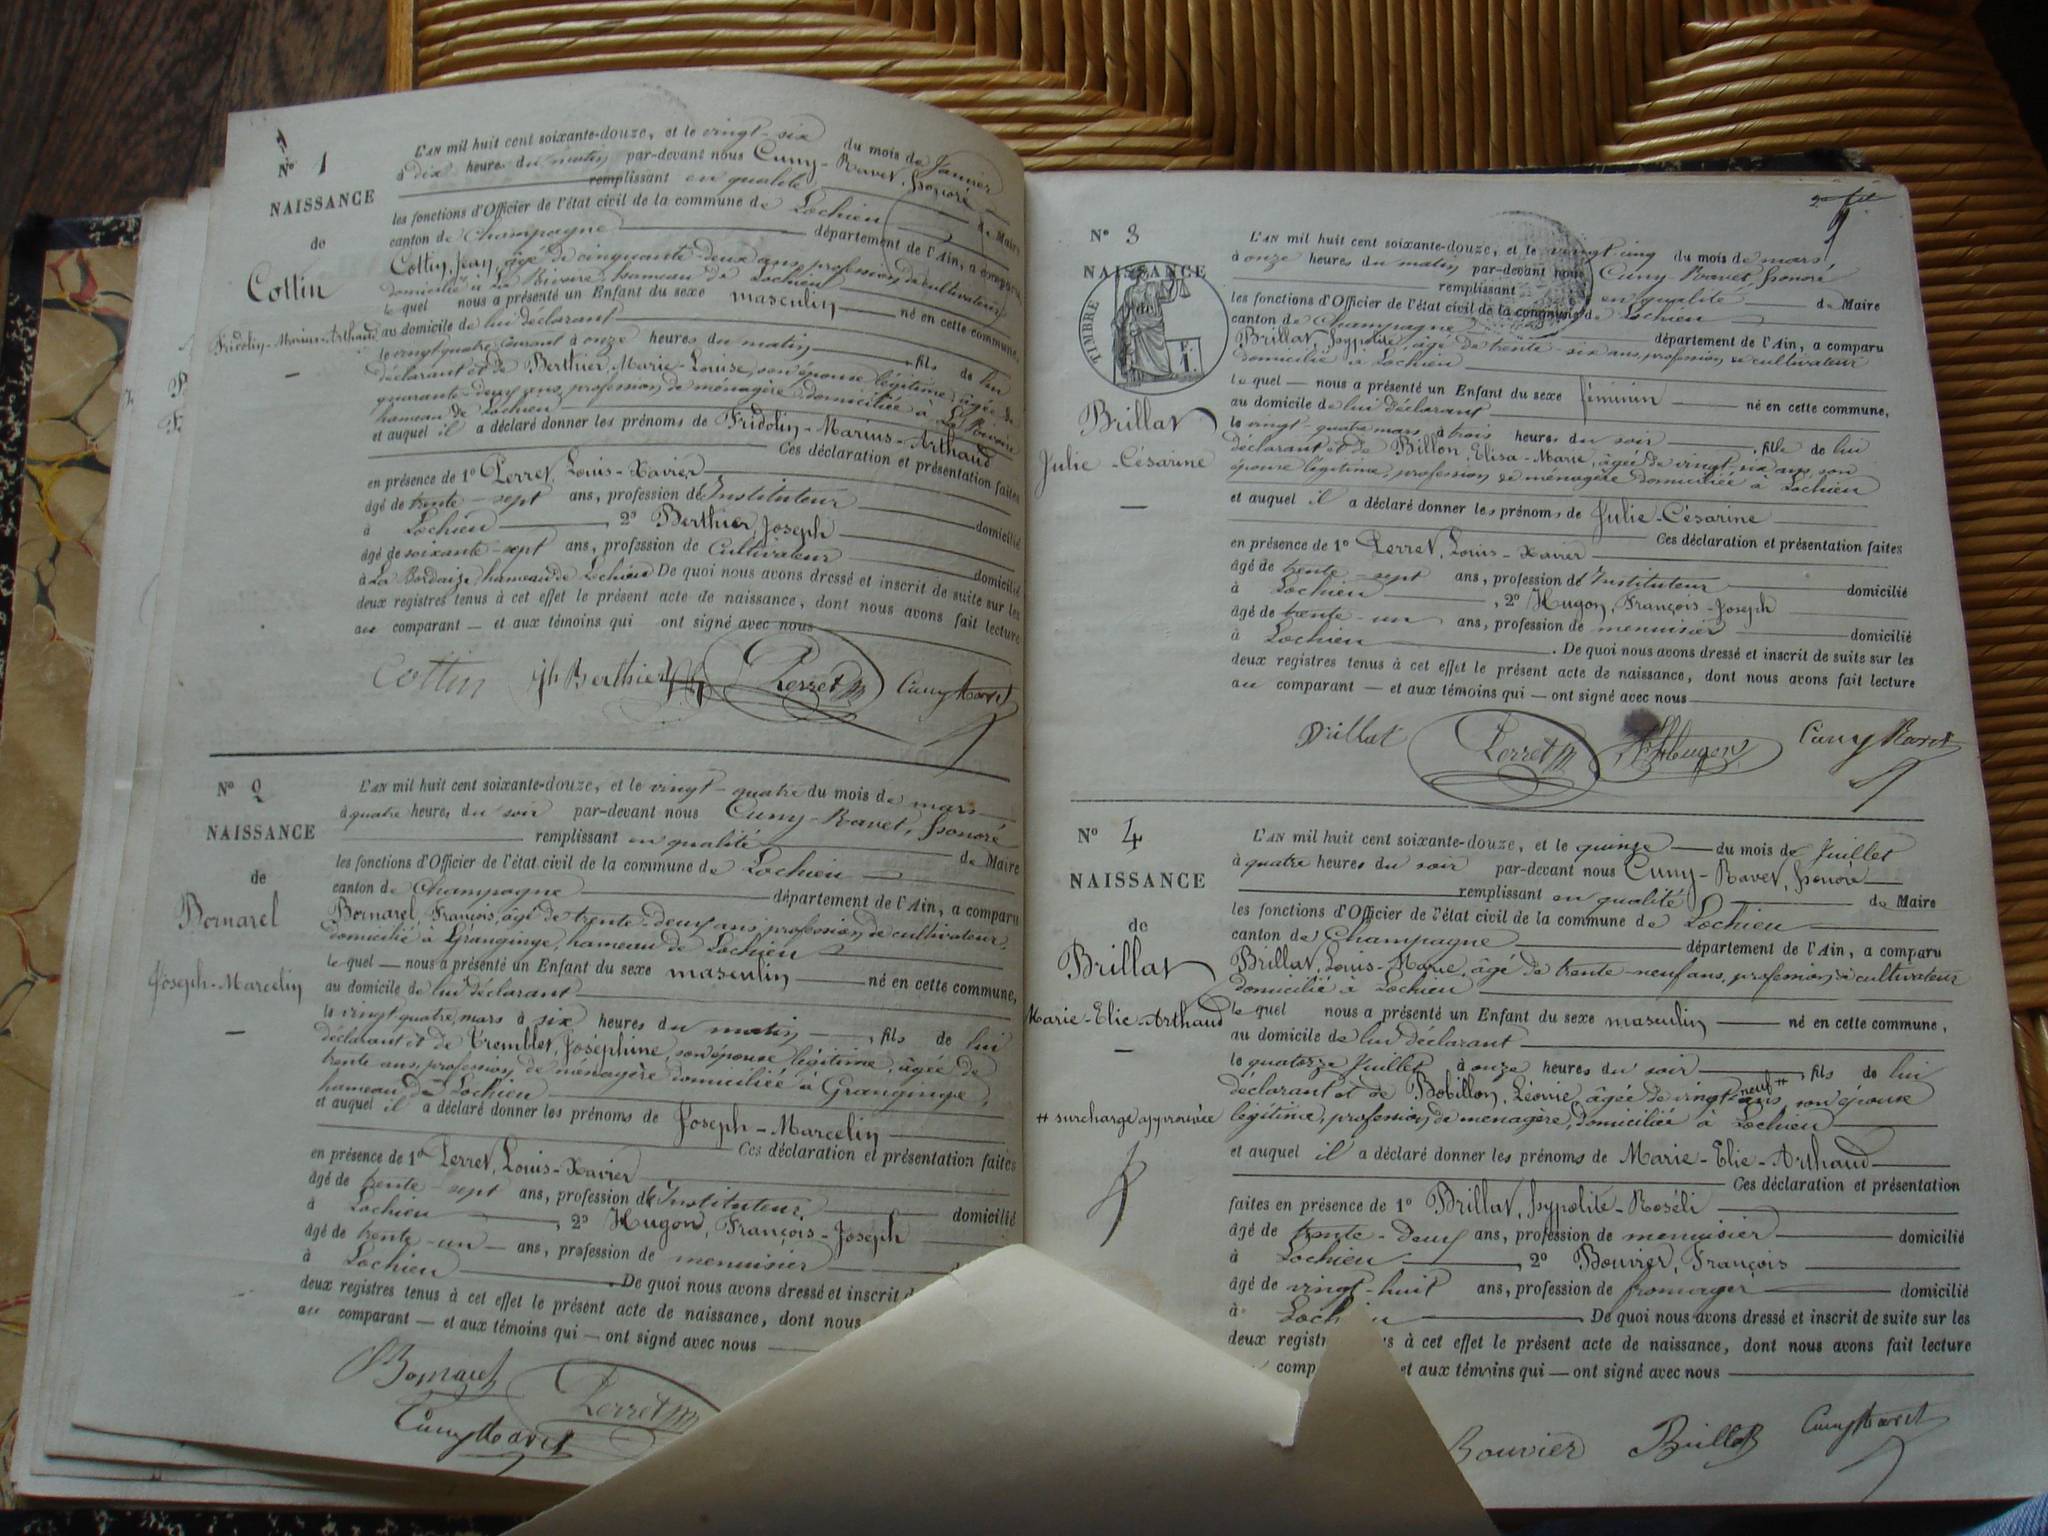 N° 1
NAISSANCE
de
Cottin
Fridolin-Marius-Arthaud
L'AN mil huit cent soixante-douze, et le vingt-six du mois de Janvier
à dix heures du matin par-devant nous Cuny-Ravet, Honoré
remplissant en qualité de Maire
les fonctions d'Officier de l'état civil de la commune de Lochieu
canton de Champagne département de l'Ain, a comparu
Cottin, Jean, âgé de cinquante-deux ans, profession de cultivateur
domicilié à La Rivoire, hameau de Lochieu
le quel nous a présenté un Enfant du sexe masculin né en cette commune,
au domicile de lui déclarant
le vingt quatre courant à onze heures du matin fils de lui
déclarant et de Berthier, Marie-Louise, son épouse légitime, âgée de
quarante-deux ans, profession de ménagère domiciliée à La Rivoire
hameau de Lochieu
et auquel il a déclaré donner les prénoms de Fridolin-Marius-Arthaud
Ces déclaration et présentation faites
en présence de 1° Perret, Louis-Xavier
âgé de trente-sept ans, profession d'Instituteur domicilié
à Lochieu, 2° Berthier, Joseph
âgé de soixante-sept ans, profession de Cultivateur domicilié
à La hameau de Lochieu De quoi nous avons dressé et inscrit de suite sur les
deux registres tenus à cet effet le présent acte de naissance, dont nous avons fait lecture
au comparant — et aux témoins qui ont signé avec nous
Cottin jh Berthier Perret Cuny Ravet
N° 2
NAISSANCE
de
Bornarel
Joseph-Marcelin
L'AN mil huit cent soixante-douze, et le vingt-quatre du mois de mars
à quatre heures du soir par-devant nous Cuny-Ravet, Honoré
remplissant en qualité de Maire
les fonctions d'Officier de l'état civil de la commune de Lochieu
canton de Champagne département de l'Ain, a comparu
Bornarel, François, âgé de trente-deux ans, profession de cultivateur
domicilié à Granginge, hameau de Lochieu
le quel — nous a présenté un Enfant du sexe masculin né en cette commune,
au domicile de lui déclarant
le vingt quatre mars à six heures du matin, fils de lui
déclarant et de Tremblet, Joséphine, son épouse légitime, âgée de
trente ans, profession de ménagère domiciliée à Granginge,
hameau de Lochieu
et auquel il a déclaré donner les prénoms de Joseph-Marcelin
Ces déclaration et présentation faites
en présence de 1° Perret, Louis-Xavier
âgé de trente-sept ans, profession d'Instituteur domicilié
à Lochieu, 2° Hugon, François-Joseph
âgé de trente-un — ans, profession de menuisier
à Lochieu. De quoi nous avons dressé et inscrit
deux registres tenus à cet effet le présent acte de naissance, dont nous
au comparant — et aux témoins qui — ont signé avec nous
Bornarel Perret
Cuny Ravet
N° 3
NAISSANCE
de
TIMBRE
F. 1.
Brillat
Julie-Césarine
L'AN mil huit cent soixante-douze, et le vingt-cinq du mois de mars
à onze heures du matin par-devant nous Cuny-Ravet, Honoré
remplissant en qualité de Maire
les fonctions d'Officier de l'état civil de la commune de Lochieu
canton de Champagne département de l'Ain, a comparu
Brillat, Hypolite, âgé de trente-six ans, profession de cultivateur
domicilié à Lochieu
le quel — nous a présenté un Enfant du sexe féminin né en cette commune,
au domicile de lui déclarant
le vingt-quatre mars à trois heures du soir, fille de lui
déclarant et de Billon, Elisa-Marie, âgée de vingt-six ans, son
épouse légitime, profession de ménagère domiciliée à Lochieu
et auquel il a déclaré donner les prénoms de Julie-Césarine
Ces déclaration et présentation faites
en présence de 1° Perret, Louis-Xavier
âgé de trente-sept ans, profession d'Instituteur domicilié
à Lochieu, 2° Hugon, François-Joseph
âgé de trente-un ans, profession de menuisier domicilié
à Lochieu. De quoi nous avons dressé et inscrit de suite sur les
deux registres tenus à cet effet le présent acte de naissance, dont nous avons fait lecture
au comparant — et aux témoins qui — ont signé avec nous
Brillat Perret Hugon Cuny Ravet
N° 4
NAISSANCE
de
Brillat
Marie-Elie-Arthaud
# surcharge approuvée
L'AN mil huit cent soixante-douze, et le quinze du mois de Juillet
à quatre heures du soir par-devant nous Cuny-Ravet, Honoré
remplissant en qualité de Maire
les fonctions d'Officier de l'état civil de la commune de Lochieu
canton de Champagne département de l'Ain, a comparu
Brillat, Louis-Marie, âgé de trente-neuf ans, profession de cultivateur
domicilié à Lochieu
le quel nous a présenté un Enfant du sexe masculin né en cette commune,
au domicile de lui déclarant
le quatorze Juillet à onze heures du soir, fils de lui
déclarant et de Bobillon, Léonie, âgée de vingt-neuf # ans son épouse
légitime, profession de ménagère, domiciliée à Lochieu
et auquel il a déclaré donner les prénoms de Marie-Elie-Arthaud
Ces déclaration et présentation
faites en présence de 1° Brillat, Hypolite-Roséli
âgé de trente-deux ans, profession de menuisier domicilié
à Lochieu, 2° Bouvier, François
âgé de vingt-huit ans, profession de fromager domicilié
à Lochieu De quoi nous avons dressé et inscrit de suite sur les
deux registres à cet effet le présent acte de naissance, dont nous avons fait lecture
comp et aux témoins qui — ont signé avec nous
Bouvier Brillat Cuny Ravet